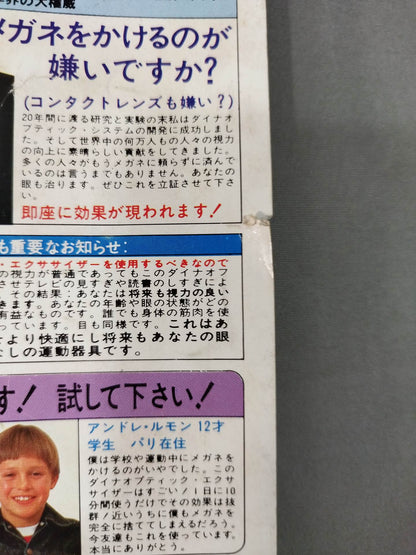 ネットの大権威
メガネをかけるのが
嫌いですか?
(コンタクトレンズも嫌い?)
20年間に渡る研究と実験の末私はダイナオ
プティック・システムの開発に成功しまし
た。そして世界中の何万人もの人々の視力
の向上に素晴らしい貢献をしてきました。
多くの人々がもうメガネに頼らずに済んで
いるのは言うまでもありません。あなたの
眼も治ります。ぜひこれを立証させて下さ
い。
即座に効果が現われます!
も重要なお知らせ:
・エクササイザーを使用するべきなので
の視力が普通であってもこのダイナオプ
させテレビの見すぎや読書のしすぎによ
。その結果:あなたは将来も視力の良い
きます。あなたの年齢や眼の状態がどの
有益なものです。誰でも身体の筋肉を使
っています。目も同様です。これはあ
をより快適にし将来もあなたの眼
なしの運動器具です。
す! 試して下さい!
アンドレ・ルモン 12才
学生 パリ在住
僕は学校や運動中にメガネを
かけるのがいやでした。この
ダイナオプティック・エクサ
サイザーはすごい!1日に10
分間使うだけでその効果は抜
群!近いうちに僕もメガネを
完全に捨ててしまえるだろう。
今友達もこれを使っています。
本当にありがとう。